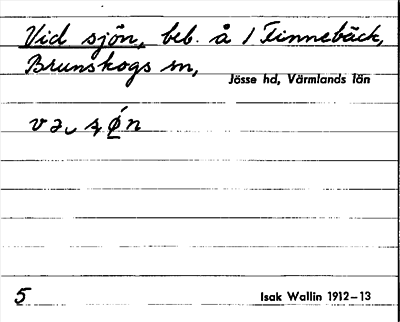 Vid sjön, beb. å 1 Finnebäck,
Brunskogs sn,
Jösse hd, Värmlands län
5
Isak Wallin 1912–13